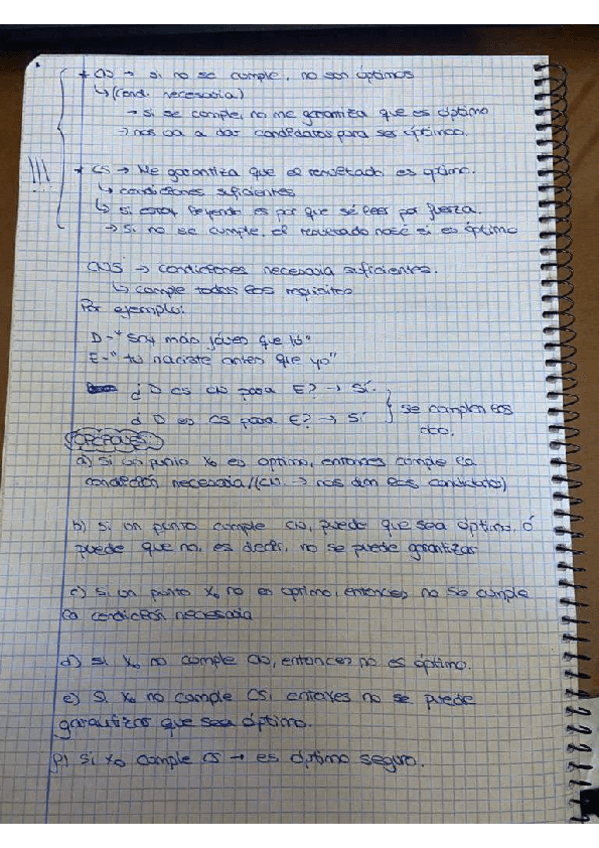 * CN → si no se cumple, no son óptimos
↳ (cond. necesaria)
→ si se cumple, no me garantiza que es óptimo
→ nos va a dar candidatos para ser óptimos.
!!! * CS → Me garantiza que el resultado es óptimo.
↳ condiciones suficientes
↳ si estoy leyendo es por que sé leer por fuerza.
→ Si no se cumple, el resultado no sé si es óptimo
CNS → condiciones necesaria suficientes.
↳ cumple todos los requisitos
Por ejemplo:
D = "Soy más jóven que tú"
E = "tú naciste antes que yo"
¿D es CN para E? → Sí.
¿D es CS para E? → Sí } se cumplen los
dos.
OPCIONES:
a) Si un punto x₀ es óptimo, entonces cumple la
condición necesaria // (CN → nos dan los candidatos)
b) Si un punto cumple CN, puede que sea óptimo, ó
puede que no, es decir, no se puede garantizar
c) Si un punto x₀ no es óptimo, entonces no se cumple
la condición necesaria
d) Si x₀ no cumple CN, entonces no es óptimo.
e) Si x₀ no cumple CS, entonces no se puede
garantizar que sea óptimo.
f) Si x₀ cumple CS → es óptimo seguro.